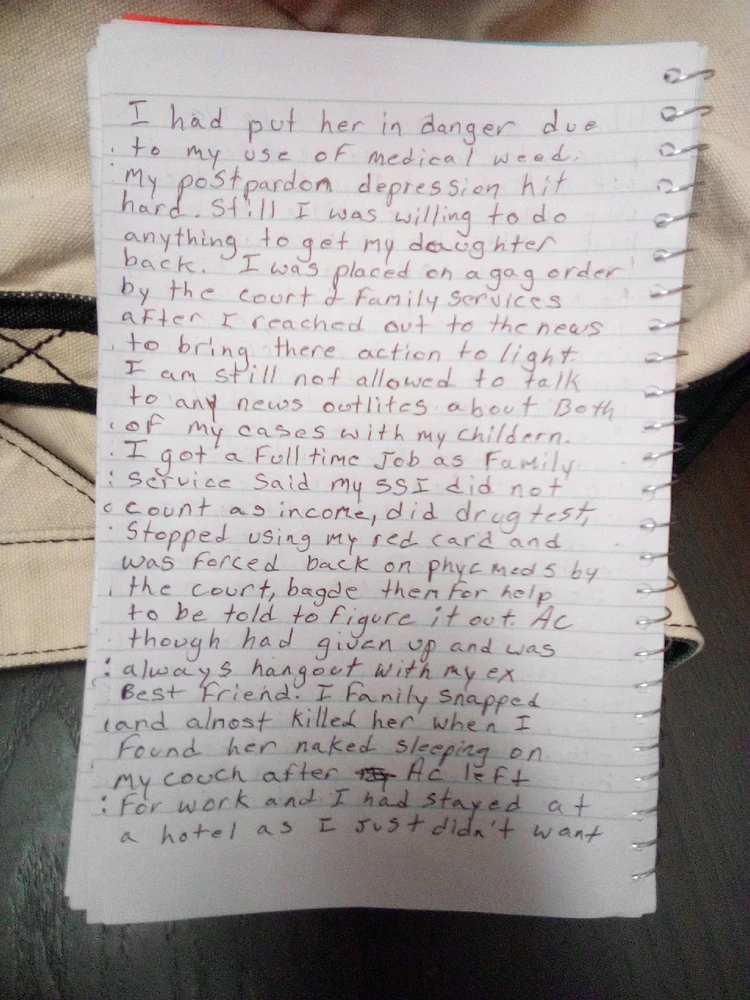 I had put her in danger due
to my use of medical weed.
My postpardon depression hit
hard. Still I was willing to do
anything to get my daughter
back. I was placed on a gag order
by the court & Family services
after I reached out to the news
to bring there action to light.
I am still not allowed to talk
to any news outlites about Both
of my cases with my childern.
I got a Full time Job as Family
service said my SSI did not
count as income, did drug test,
Stopped using my red card and
was forced back on phyc meds by
the court, bagde them for help
to be told to figure it out. AC
though had given up and was
always hangout with my ex
Best Friend. I Fanily snapped
and almost killed her when I
Found her naked sleeping on
my couch after AC left
For work and I had stayed at
a hotel as I Just didn't want